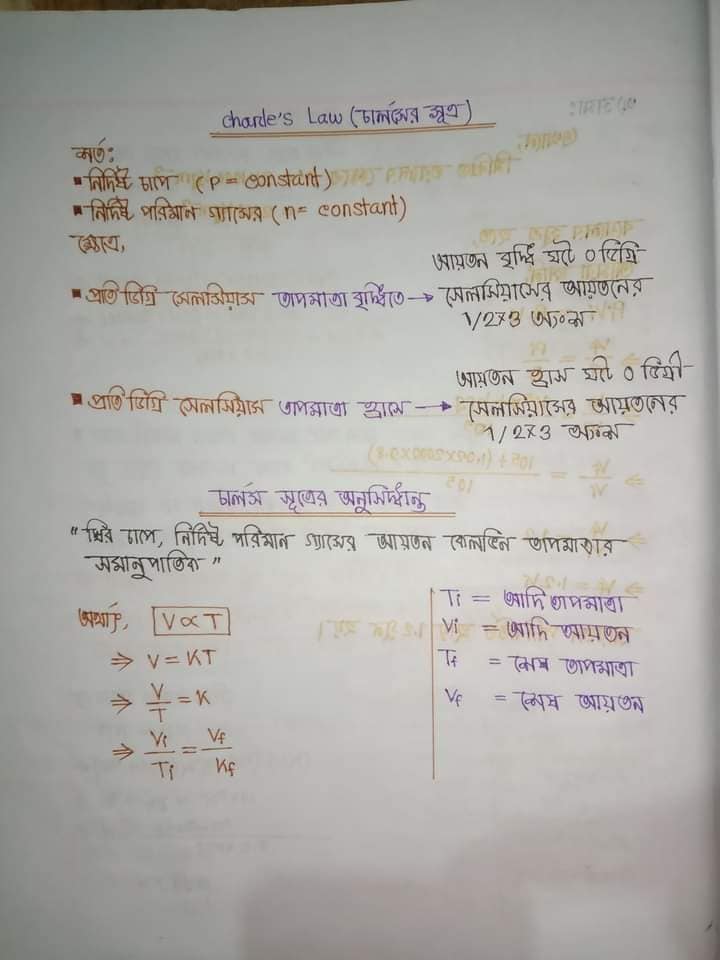 Charle's Law (চার্লসের সূত্র)
শর্ত:
▪ নির্দিষ্ট চাপে (P = constant)
▪ নির্দিষ্ট পরিমান গ্যাসের (n = constant)
ক্ষেত্রে,
▪ প্রতি ডিগ্রি সেলসিয়াস তাপমাত্রা বৃদ্ধিতে → আয়তন বৃদ্ধি ঘটে 0 ডিগ্রি
সেলসিয়াসের আয়তনের
1/273 অংশ
▪ প্রতি ডিগ্রি সেলসিয়াস তাপমাত্রা হ্রাসে → আয়তন হ্রাস ঘটে 0 ডিগ্রী
সেলসিয়াসের আয়তনের
1/273 অংশ
চার্লস সূত্রের অনুসিদ্ধান্ত
"স্থির চাপে, নির্দিষ্ট পরিমান গ্যাসের আয়তন কেলভিন তাপমাত্রার
সমানুপাতিক"
অর্থাৎ, V ∝ T
⇒ V = KT
⇒ V/T = K
⇒ Vi/Ti = Vf/Kf
Ti = আদি তাপমাত্রা
Vi = আদি আয়তন
Tf = শেষ তাপমাত্রা
Vf = শেষ আয়তন